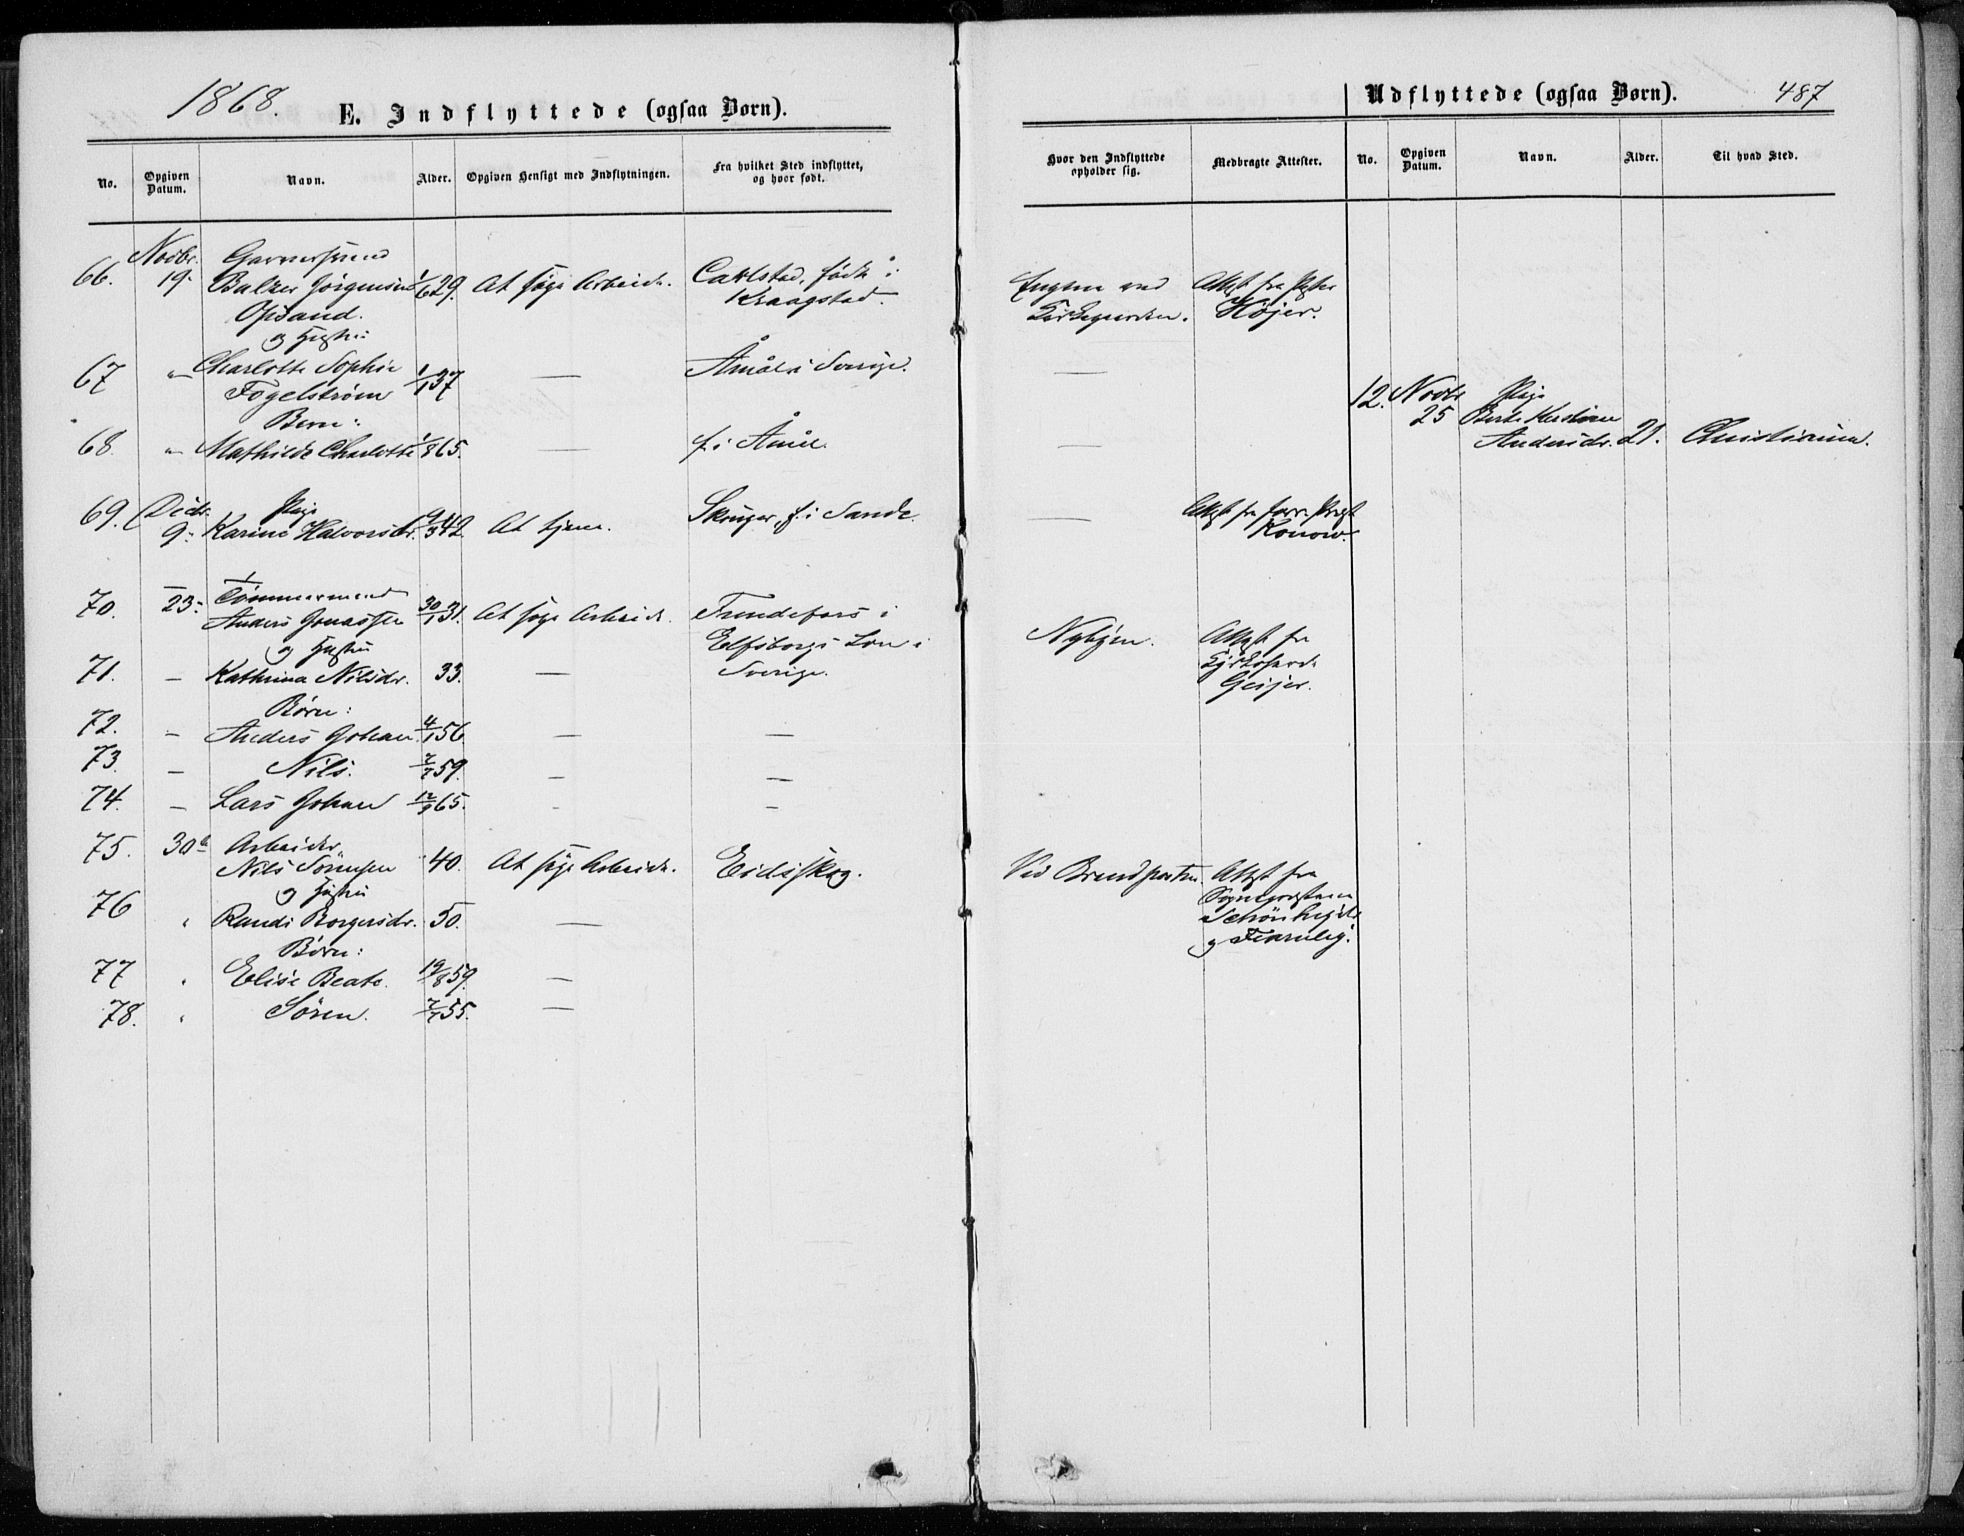 1868.
E. Indflyttede (ogsaa Børn).
No.
Opgiven Datum.
Navn.
Alder.
Opgiven Hensigt med Indflytningen.
Fra hvilket Sted indflyttet, og hvor født.
66. Novbr. 19.
Balzer Jörgensen 1/6 29. At søge Arbeide. Carlstad, født i
Opsand. Kraagstad.
og Hustru
67 " Charlotte Sophie 1/1 37 — Åmål i Sverige.
Fogelstrøm
Børn:
68. " Mathilde Charlotte 1/8 65. — f. i Åmål.
69. Decbr. 9. Pige
Karine Halvorsdr. 9/3 42 At tjene. f. i Sande.
70. 23. Tømmermand
Anders Jonassen 30/1 31. At søge Arbeide. i
og Hustru Elfsborgs Län i
71. — Kathrina Nilsdr. 33. — Sverige.
Børn:
72. — Anders Johan 4/1 56. — —
73. — Nils. 2/7 59. — —
74. — Lars Johan 12/9 65. - -
75. 30 Arbeider
Nils Sörensen 40. At søge Arbeide. Eidsskog.
og Hustru
76 " Randi Borgersdr. 50. —
Børn:
77 " Elise Beate. 19/8 59. —
78. " Sören. 2/7 55. —
Udflyttede (ogsaa Børn).
487
Hvor den Indflyttede opholder sig.
Medbragte Attester.
No.
Opgiven Datum.
Navn.
Alder.
Til hvad Sted.
Engene ved Attest fra
Kirkegaarden. Höjer.
—
12. Novbr. 25 Pige
Andersdr. 21. Christiania.
—
— Attest fra
Konow.
Attest fra
Geijer.
Ved Attest fra
Sognepræsterne
og